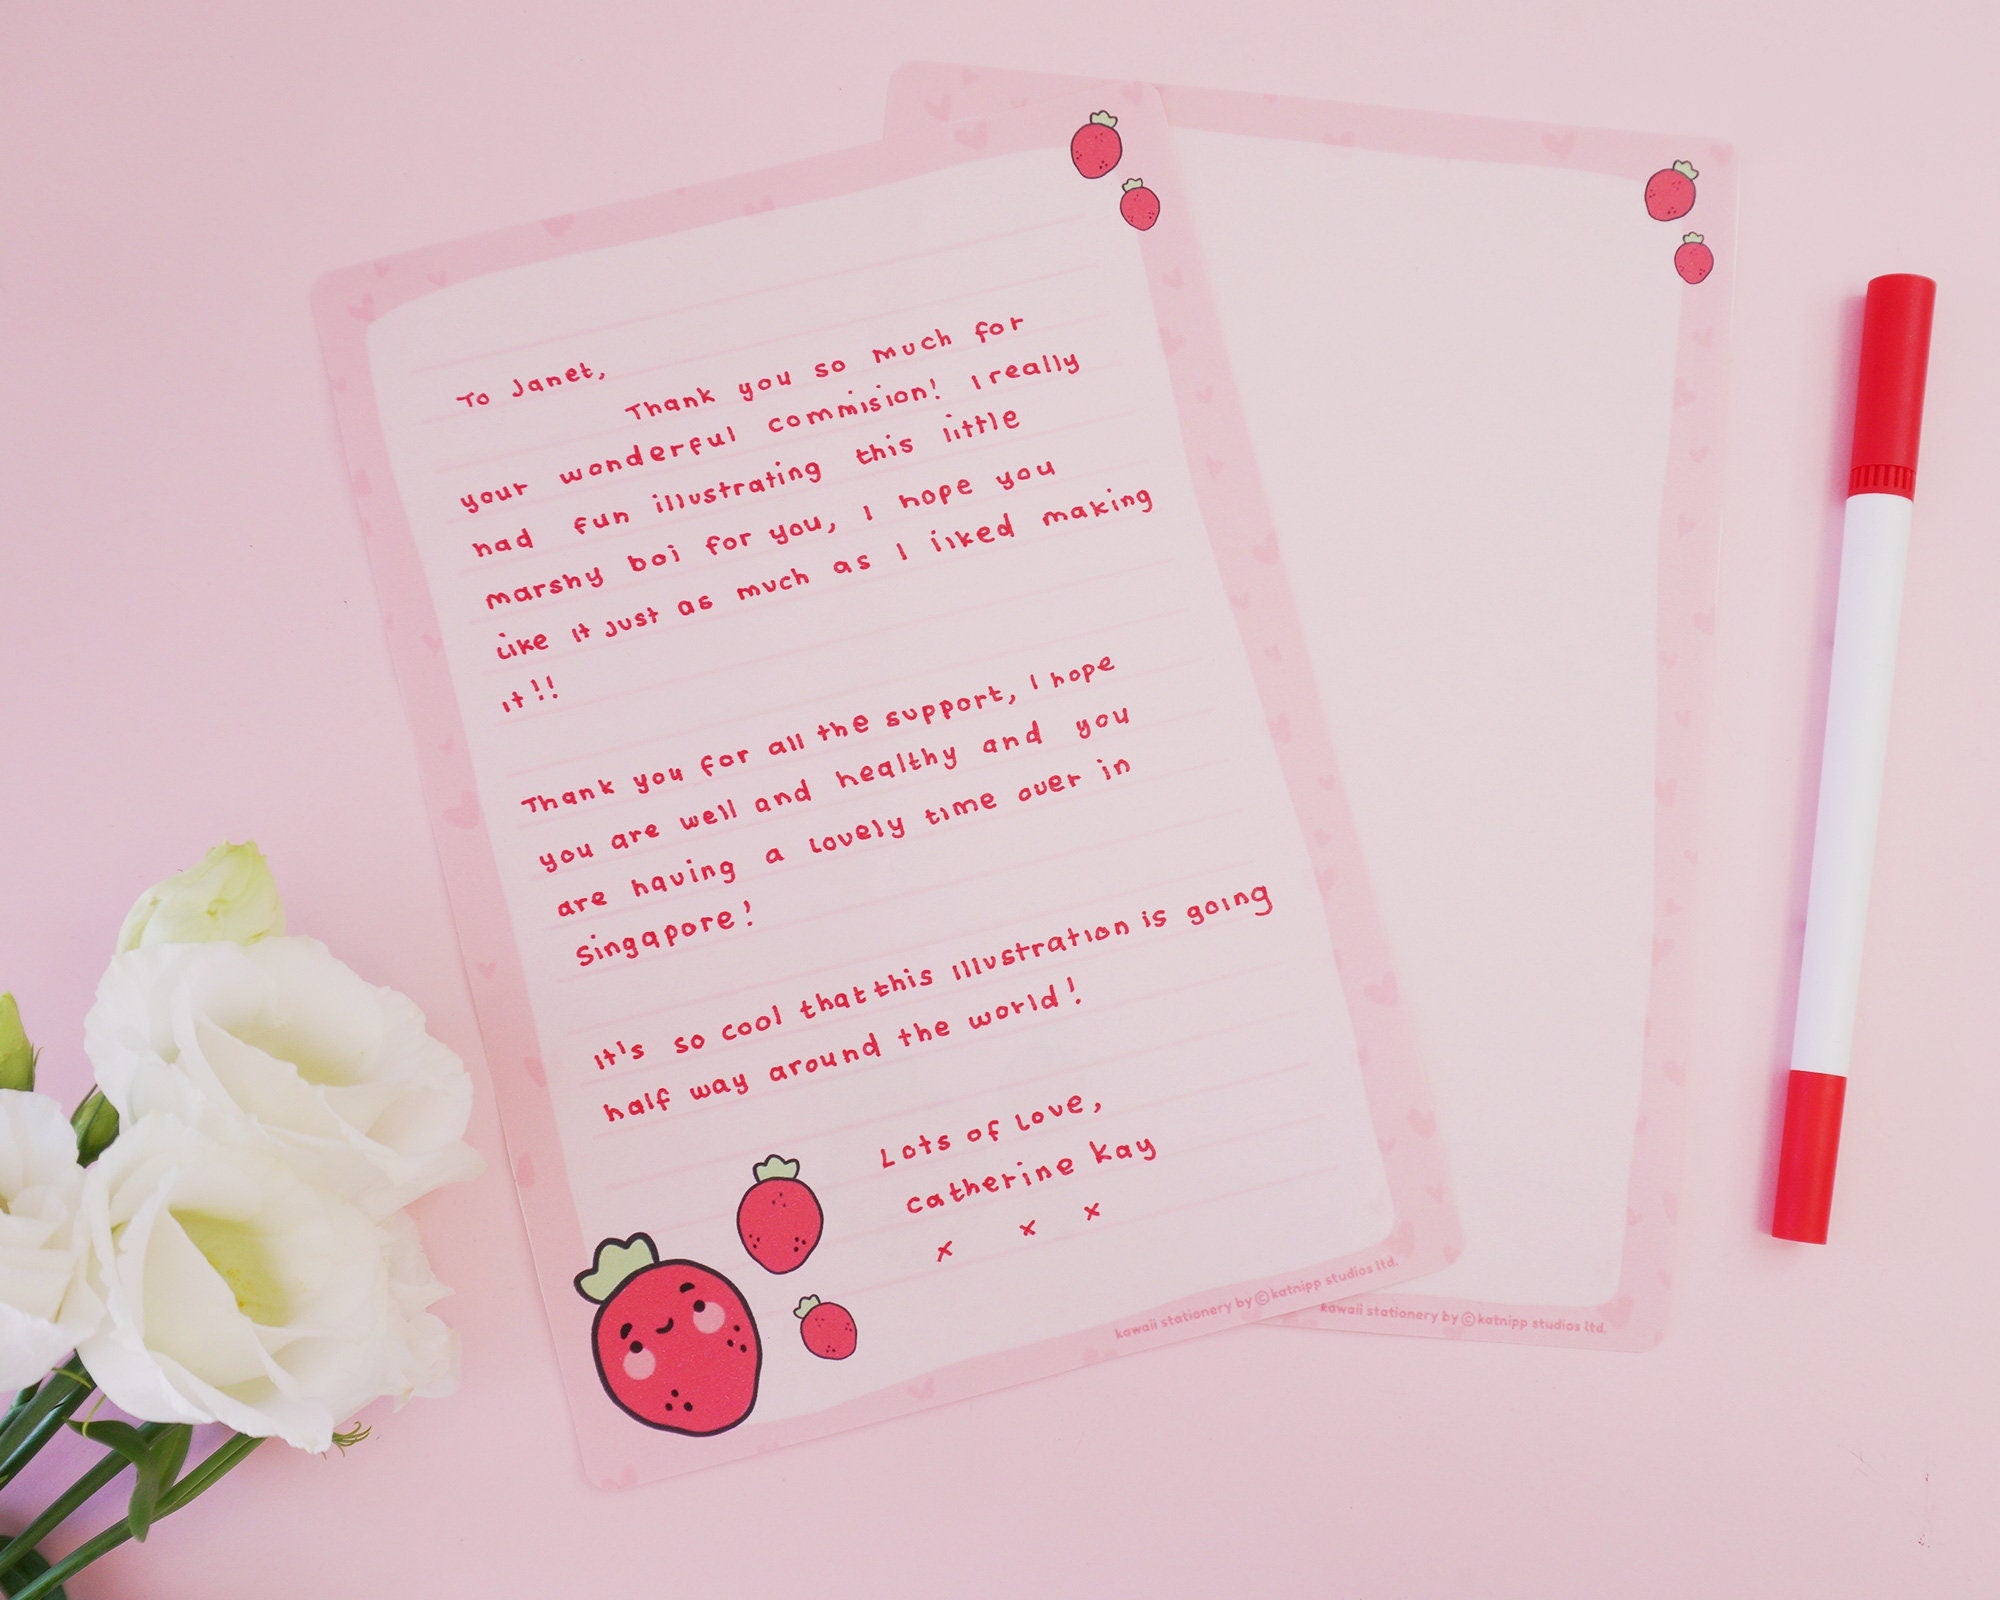 To Janet,
Thank you so much for
your wonderful commision! I really
had fun illustrating this little
marshy boi for you, I hope you
Like it just as much as I liked making
it!!
Thank you for all the support, I hope
you are well and healthy and you
are having a lovely time over in
Singapore!
It's so cool that this illustration is going
half way around the world!
Lots of love,
Catherine Kay
x x x
kawaii stationery by © katnipp studios ltd.
kawaii stationery by © katnipp studios ltd.